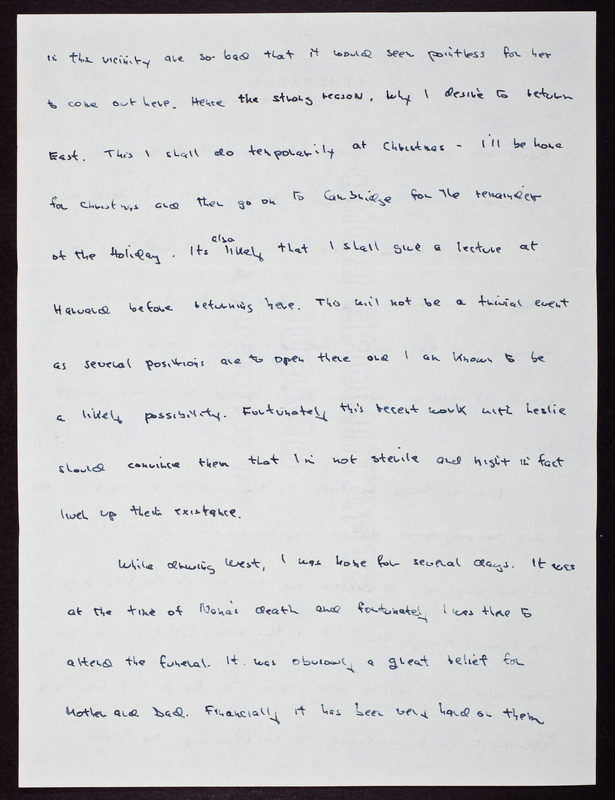 in this vicinity are so bad that it would seem pointless for her
to come out here. Hence the strong reason, why I desire to return
East. This I shall do temporarily at Christmas - I'll be home
for Christmas and then go on to Cambridge for the remainder
of the Holiday. Its also likely that I shall give a lecture at
Harvard before returning here. This will not be a trivial event
as several positions are to open there and I am known to be
a likely possibility. Fortunately this recent work with Leslie
should convince them that I'm not sterile and might in fact
liven up their existance.
While driving West, I was home for several days. It was
at the time of Nana's death and fortunately I was there to
attend the funeral. It was obviously a great relief for
Mother and Dad. Financially it has been very hard on them